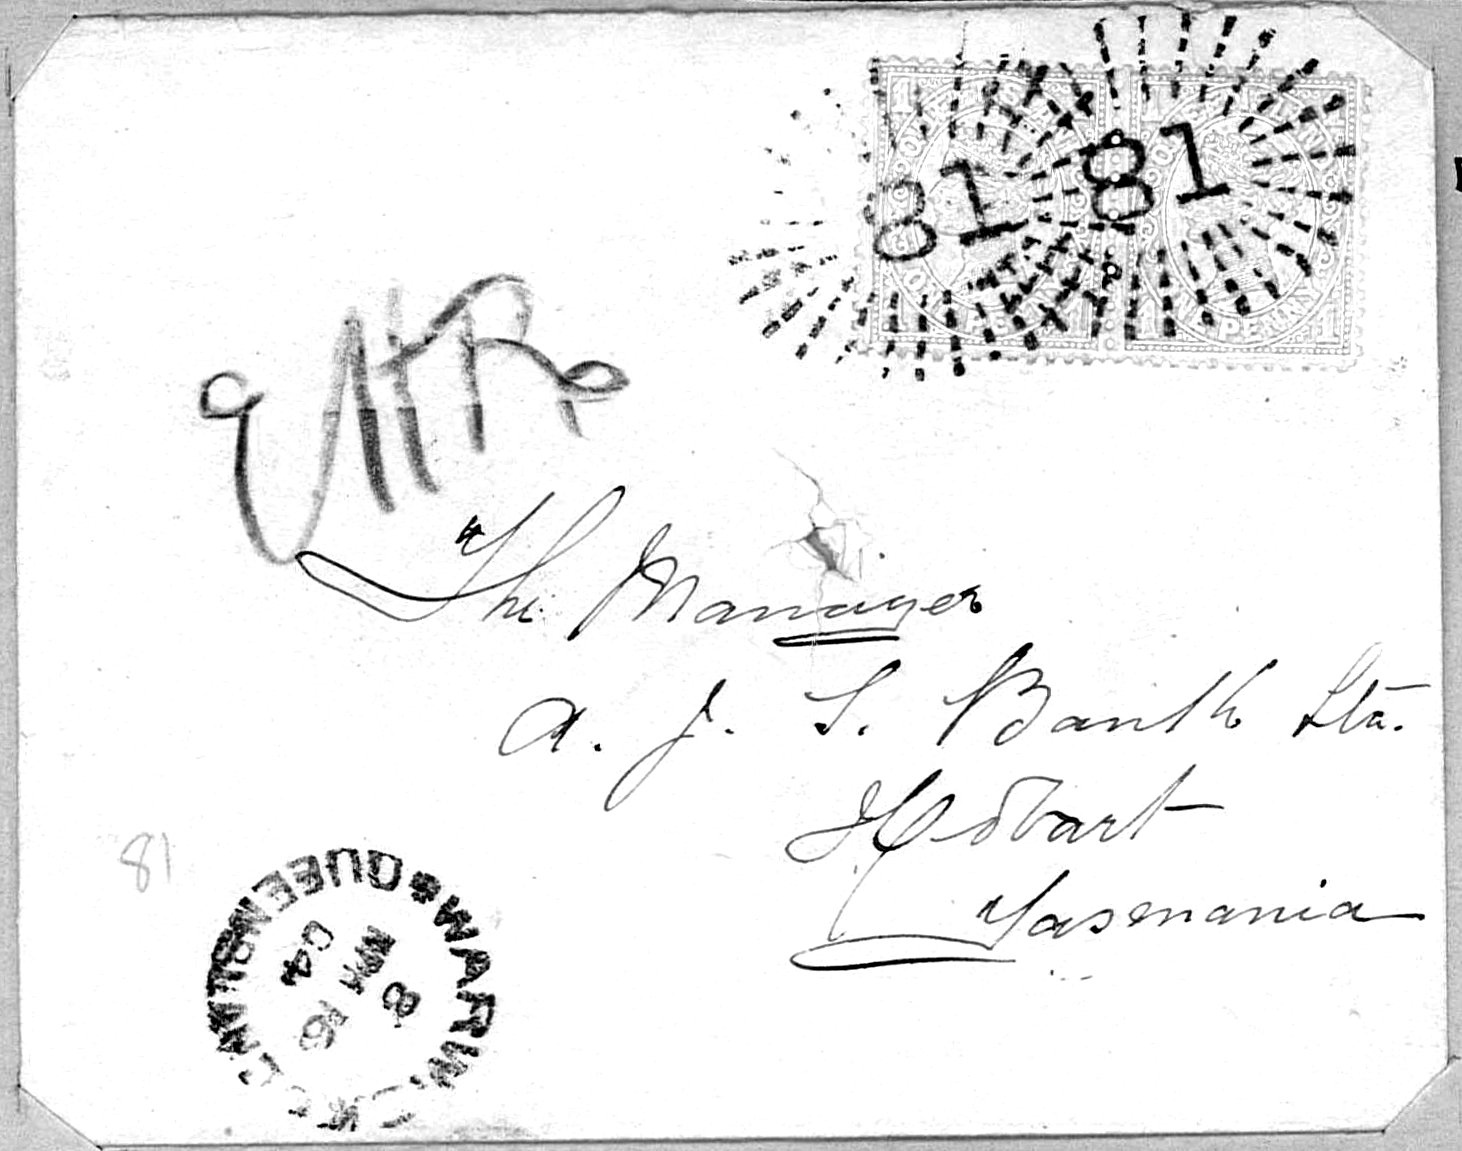 81 81
The Manager
A. J. S. Bank Ltd.
Hobart
Tasmania
81
WARWICK
QUEENSLAND
8
MR 16
04